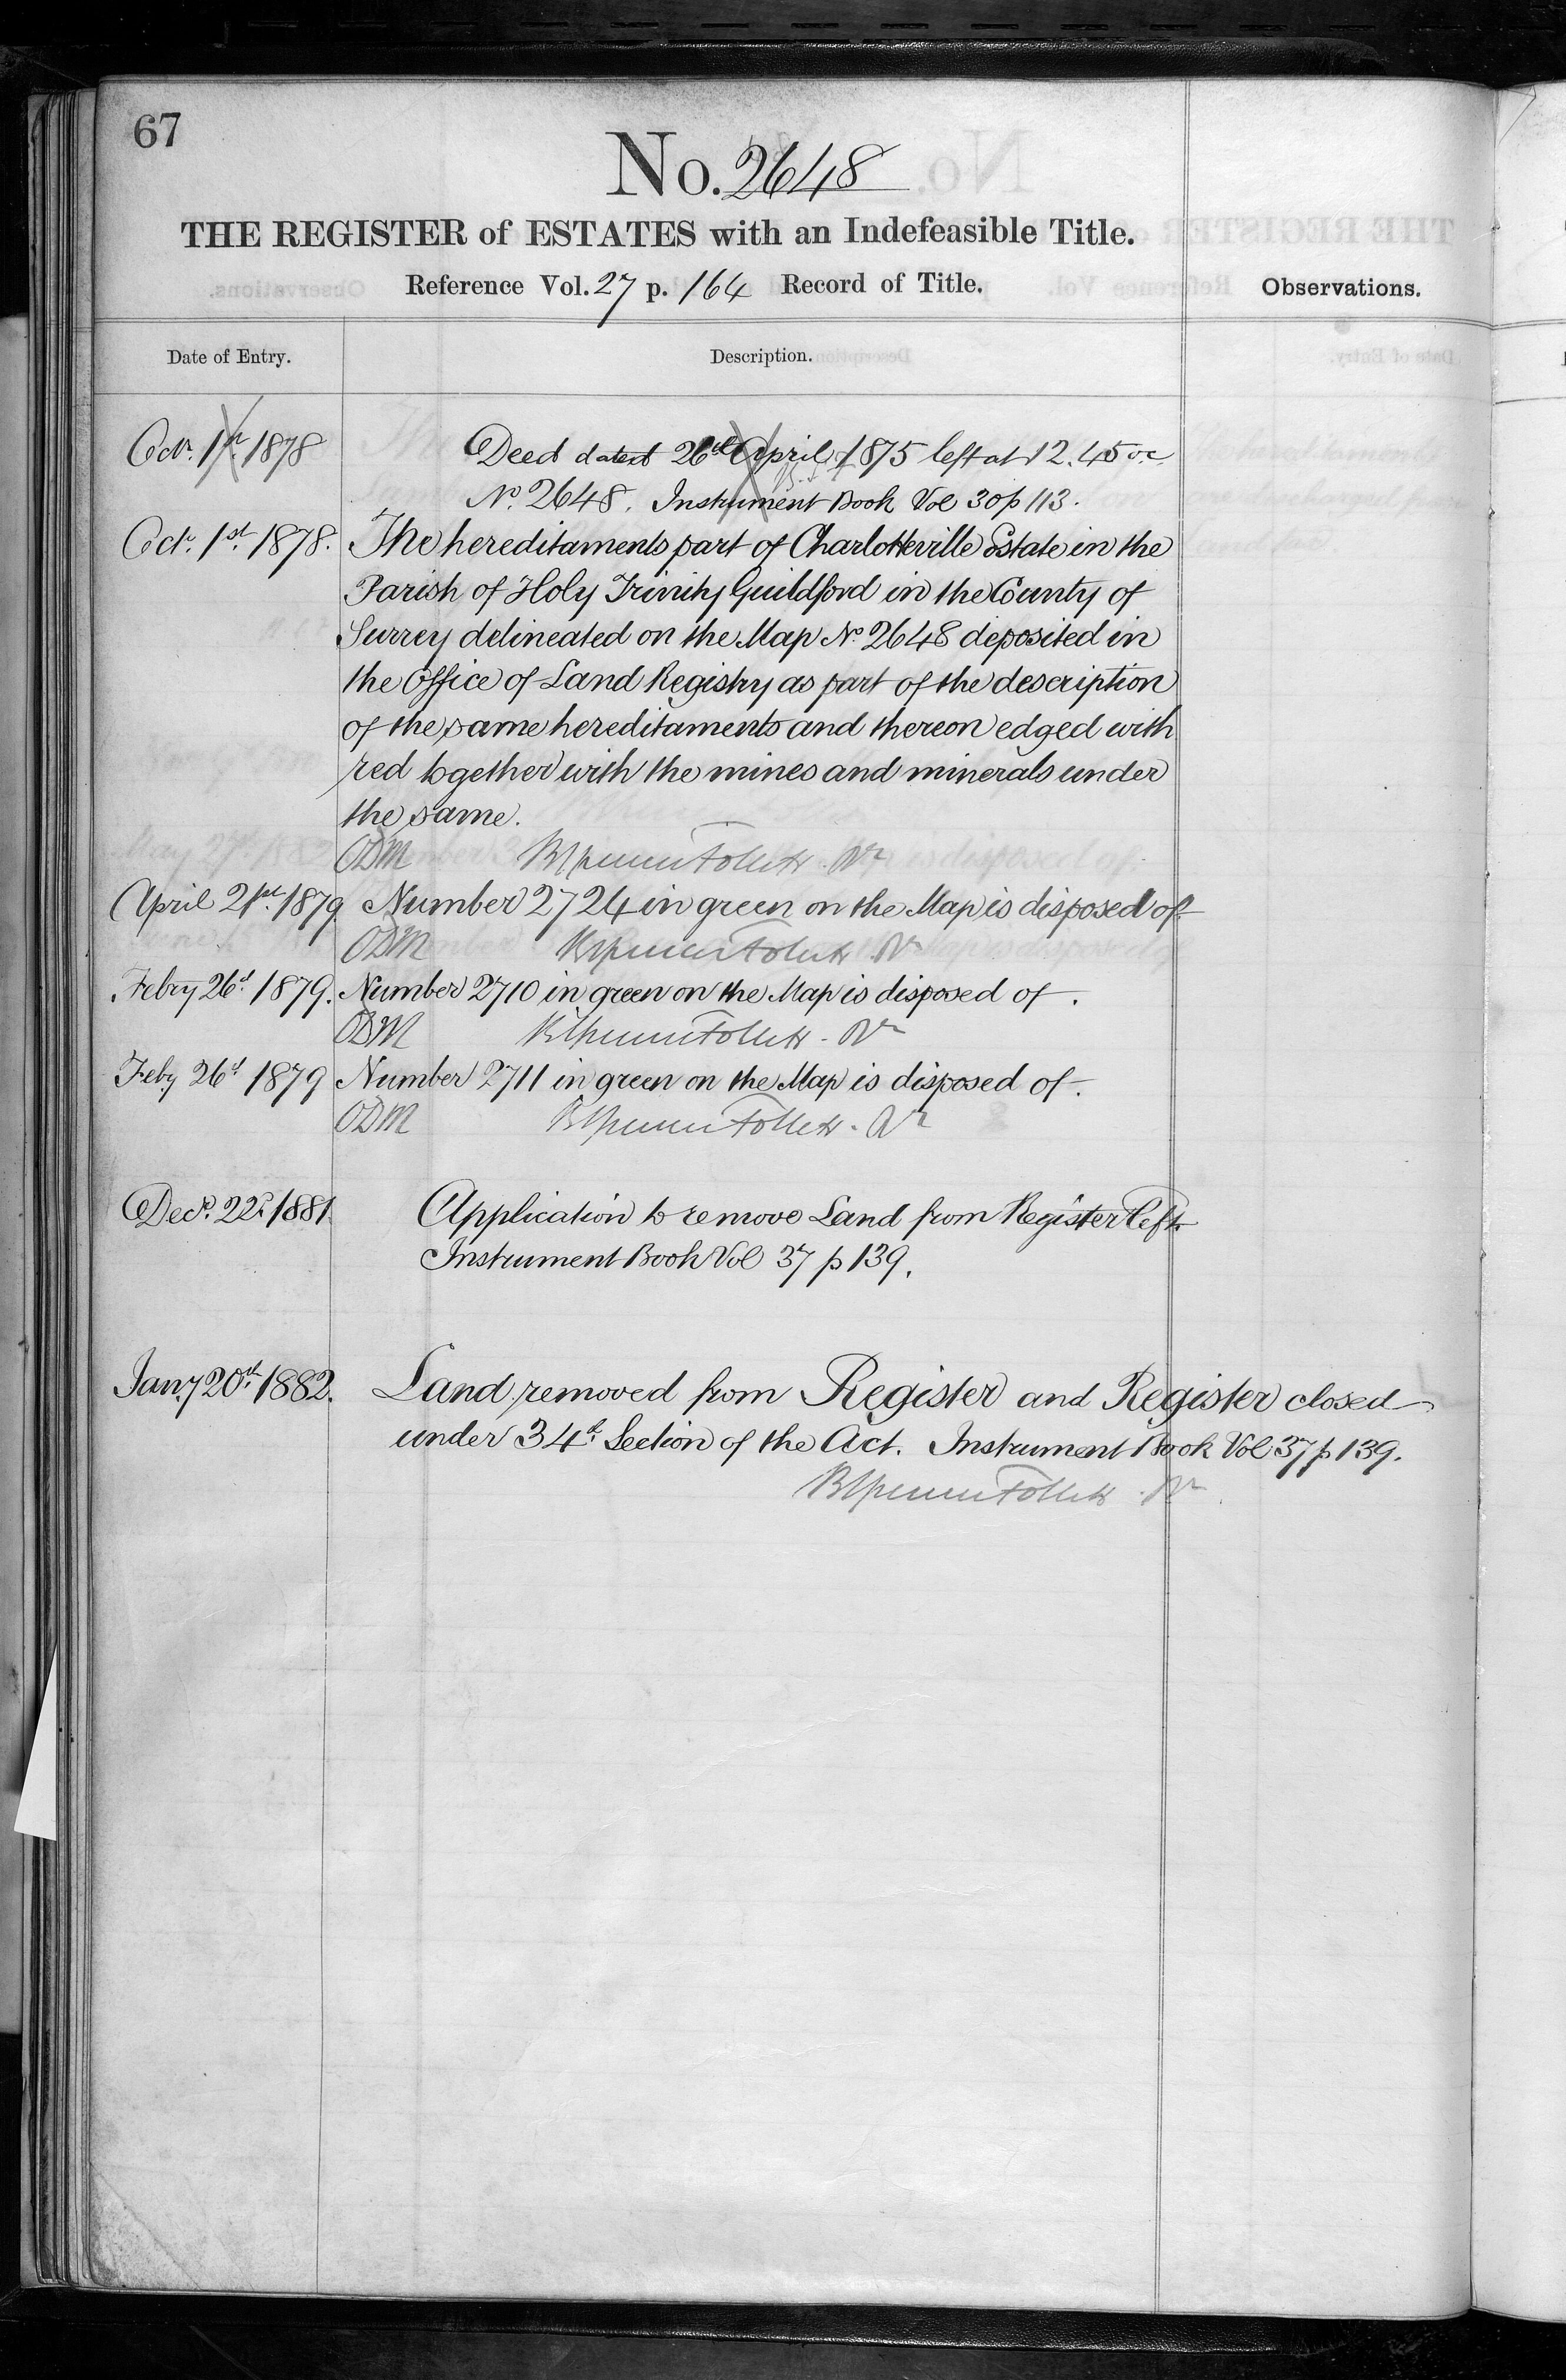 67
No. 2648
THE REGISTER of ESTATES with an Indefeasible Title.
Reference Vol. 27 p. 164 Record of Title.
Observations.
Date of Entry.
Description.
Octr. 1st 1878 Deed dated 26th April 1875 left at 12.45 oc
No. 2648. Instrument Book Vol 30 p 113.
Oct. 1st. 1878. The hereditaments part of Charlotteville Estate in the
Parish of Holy Trinity Guildford in the County of
Surrey delineated on the Map No. 2648 deposited in
the Office of Land Registry as part of the description
of the same hereditaments and thereon edged with
red together with the mines and minerals under
the same.
ODM Follett
April 21st. 1879 Number 2724 in green on the Map is disposed of
ODM Follett
Febry 26th 1879. Number 2710 in green on the Map is disposed of.
ODM Follett
Feby 26th 1879 Number 2711 in green on the Map is disposed of.
ODM Follett
Decr. 22d. 1881. Application to remove Land from Register left
Instrument Book Vol 37 p 139.
Jany 20th. 1882. Land removed from Register and Register closed
under 34th. Section of the Act. Instrument Book Vol 37 p 139.
Follett